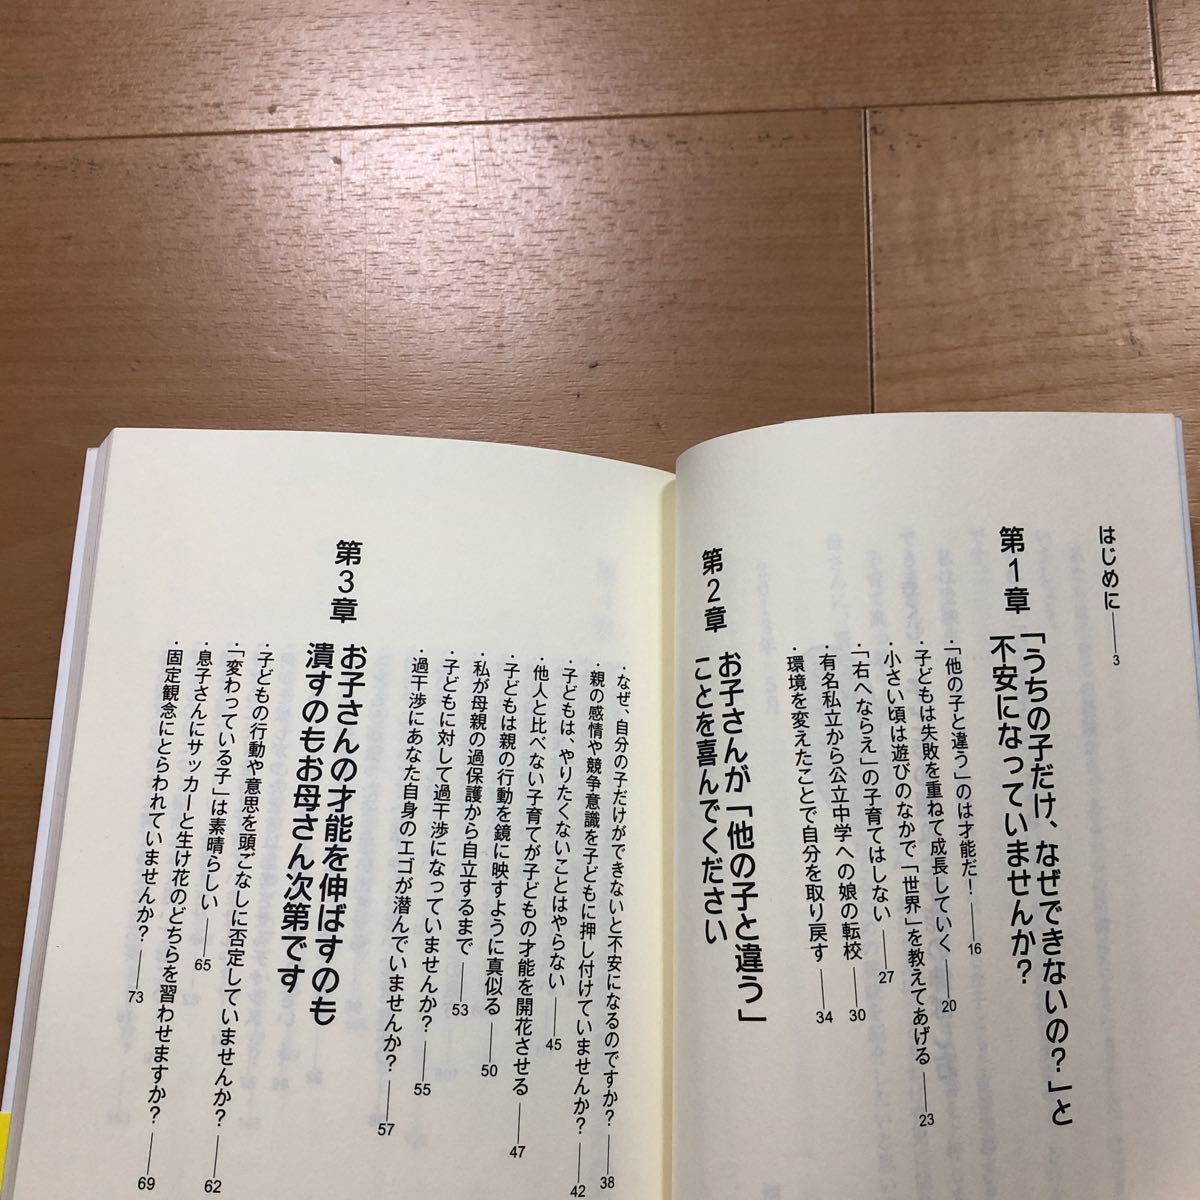 はじめに——3
第1章 「うちの子だけ、なぜできないの？」と
不安になっていませんか？
・「他の子と違う」のは才能だ！——16
・子どもは失敗を重ねて成長していく——20
・小さい頃は遊びのなかで「世界」を教えてあげる——23
・「右へならえ」の子育てはしない——27
・有名私立から公立中学への娘の転校——30
・環境を変えたことで自分を取り戻す——34
第2章 お子さんが「他の子と違う」
ことを喜んでください
・なぜ、自分の子だけができないと不安になるのですか？——38
・親の感情や競争意識を子どもに押し付けていませんか？——42
・子どもは、やりたくないことはやらない——45
・他人と比べない子育てが子どもの才能を開花させる——47
・子どもは親の行動を鏡に映すように真似る——50
・私が母親の過保護から自立するまで——53
・子どもに対して過干渉になっていませんか？——55
・過干渉にあなた自身のエゴが潜んでいませんか？——57
第3章 お子さんの才能を伸ばすのも
潰すのもお母さん次第です
・子どもの行動や意思を頭ごなしに否定していませんか？——62
・「変わっている子」は素晴らしい——65
・息子さんにサッカーと生け花のどちらを習わせますか？——69
・固定観念にとらわれていませんか？——73